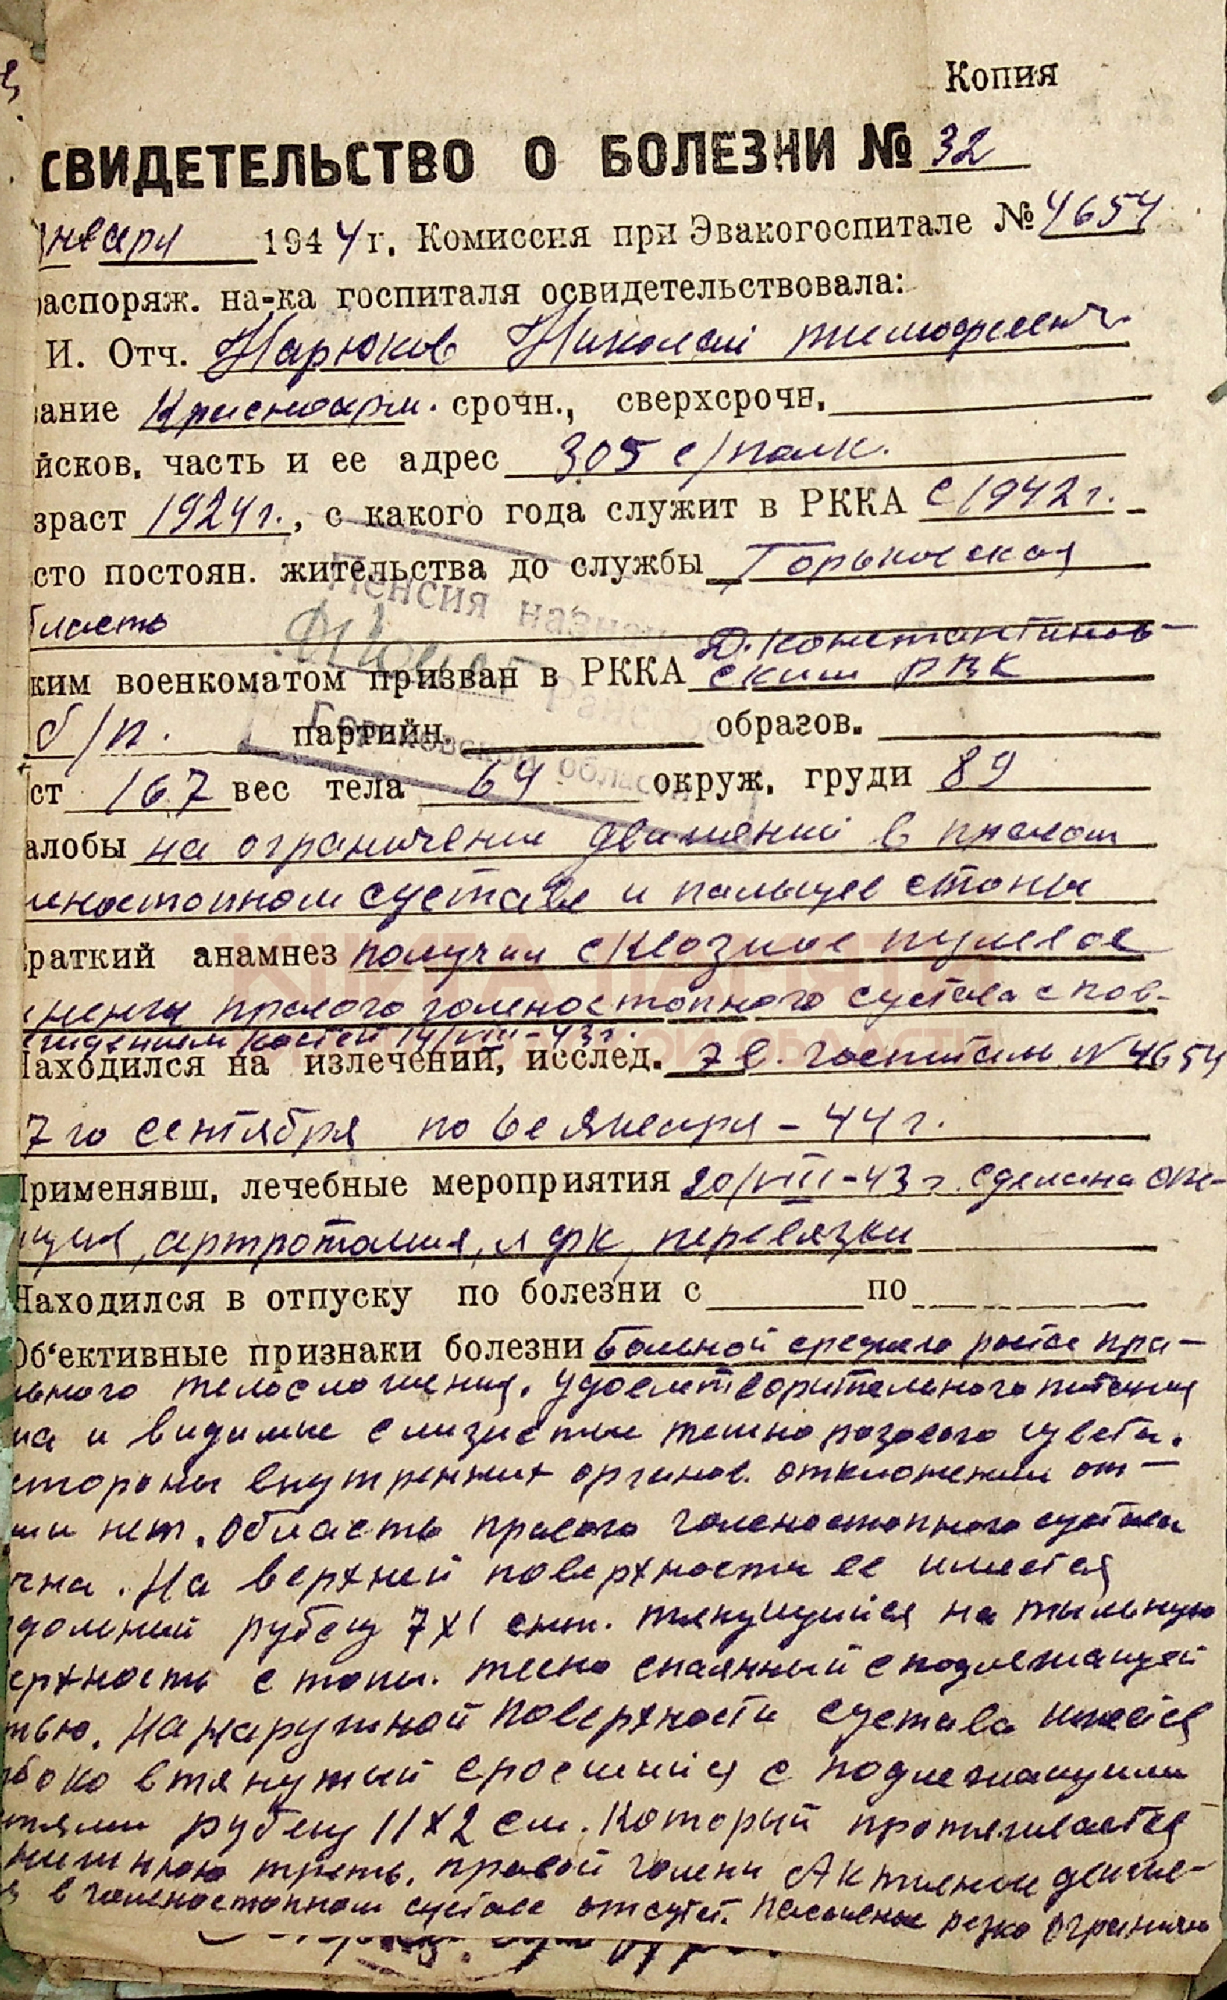 Копия
СВИДЕТЕЛЬСТВО О БОЛЕЗНИ № 32
января 1944 г. Комиссия при Эвакогоспитале № 4654
распоряж. на-ка госпиталя освидетельствовала:
И. Отч. Нарюков Николай Тимофеевич
вание Красноарм. срочн., сверхсрочн.
йсков. часть и ее адрес 305 с/полк.
зраст 1924 г., с какого года служит в РККА с 1942 г.
сто постоян. жительства до службы Горьковская
бласть
ким военкоматом призван в РККА Д. Константинов-
ским РВК
Пенсия
Горьковской области
б/п. партийн. образов.
ст 167 вес тела 69 окруж. груди 89
алобы на ограничение движений в правом
леностопном суставе и пальцев стопы
Краткий анамнез получил сквозное пулевое
КНИГА ПАМЯТИ
ОБЛАСТИ
нение правого голеностопного сустава с пов-
реждением костей 14/VIII-43 г.
Находился на излечении, исслед. 7 в. госпитале № 4654
7го сентября по 6е января - 44 г.
Применявш. лечебные мероприятия 20/VIII-43 г. сделана опе-
ация, артротомия, лфк, перевязки
Находился в отпуску по болезни с по
Об'ективные признаки болезни Больной среднего роста пра-
льного телосложения, удовлетворительного питания
жа и видимые слизистые темно розового цвета.
стороны внутренних органов отклонений от
мы нет. Область правого голеностопного сустава
чна. На верхней поверхности ее имеется
рубец 7х1 сант. тянущийся на тыльную
ерхность стопы. тесно спаянный с подлежащей
тью. На наружной поверхности сустава имеется
боко втянутый сросшийся с подлежащими
тями рубец 11х2 см. Который протягивается
нижнюю треть правой голени Активные движе-
я в голеностопном суставе отсутст. Пассивные резко ограниче